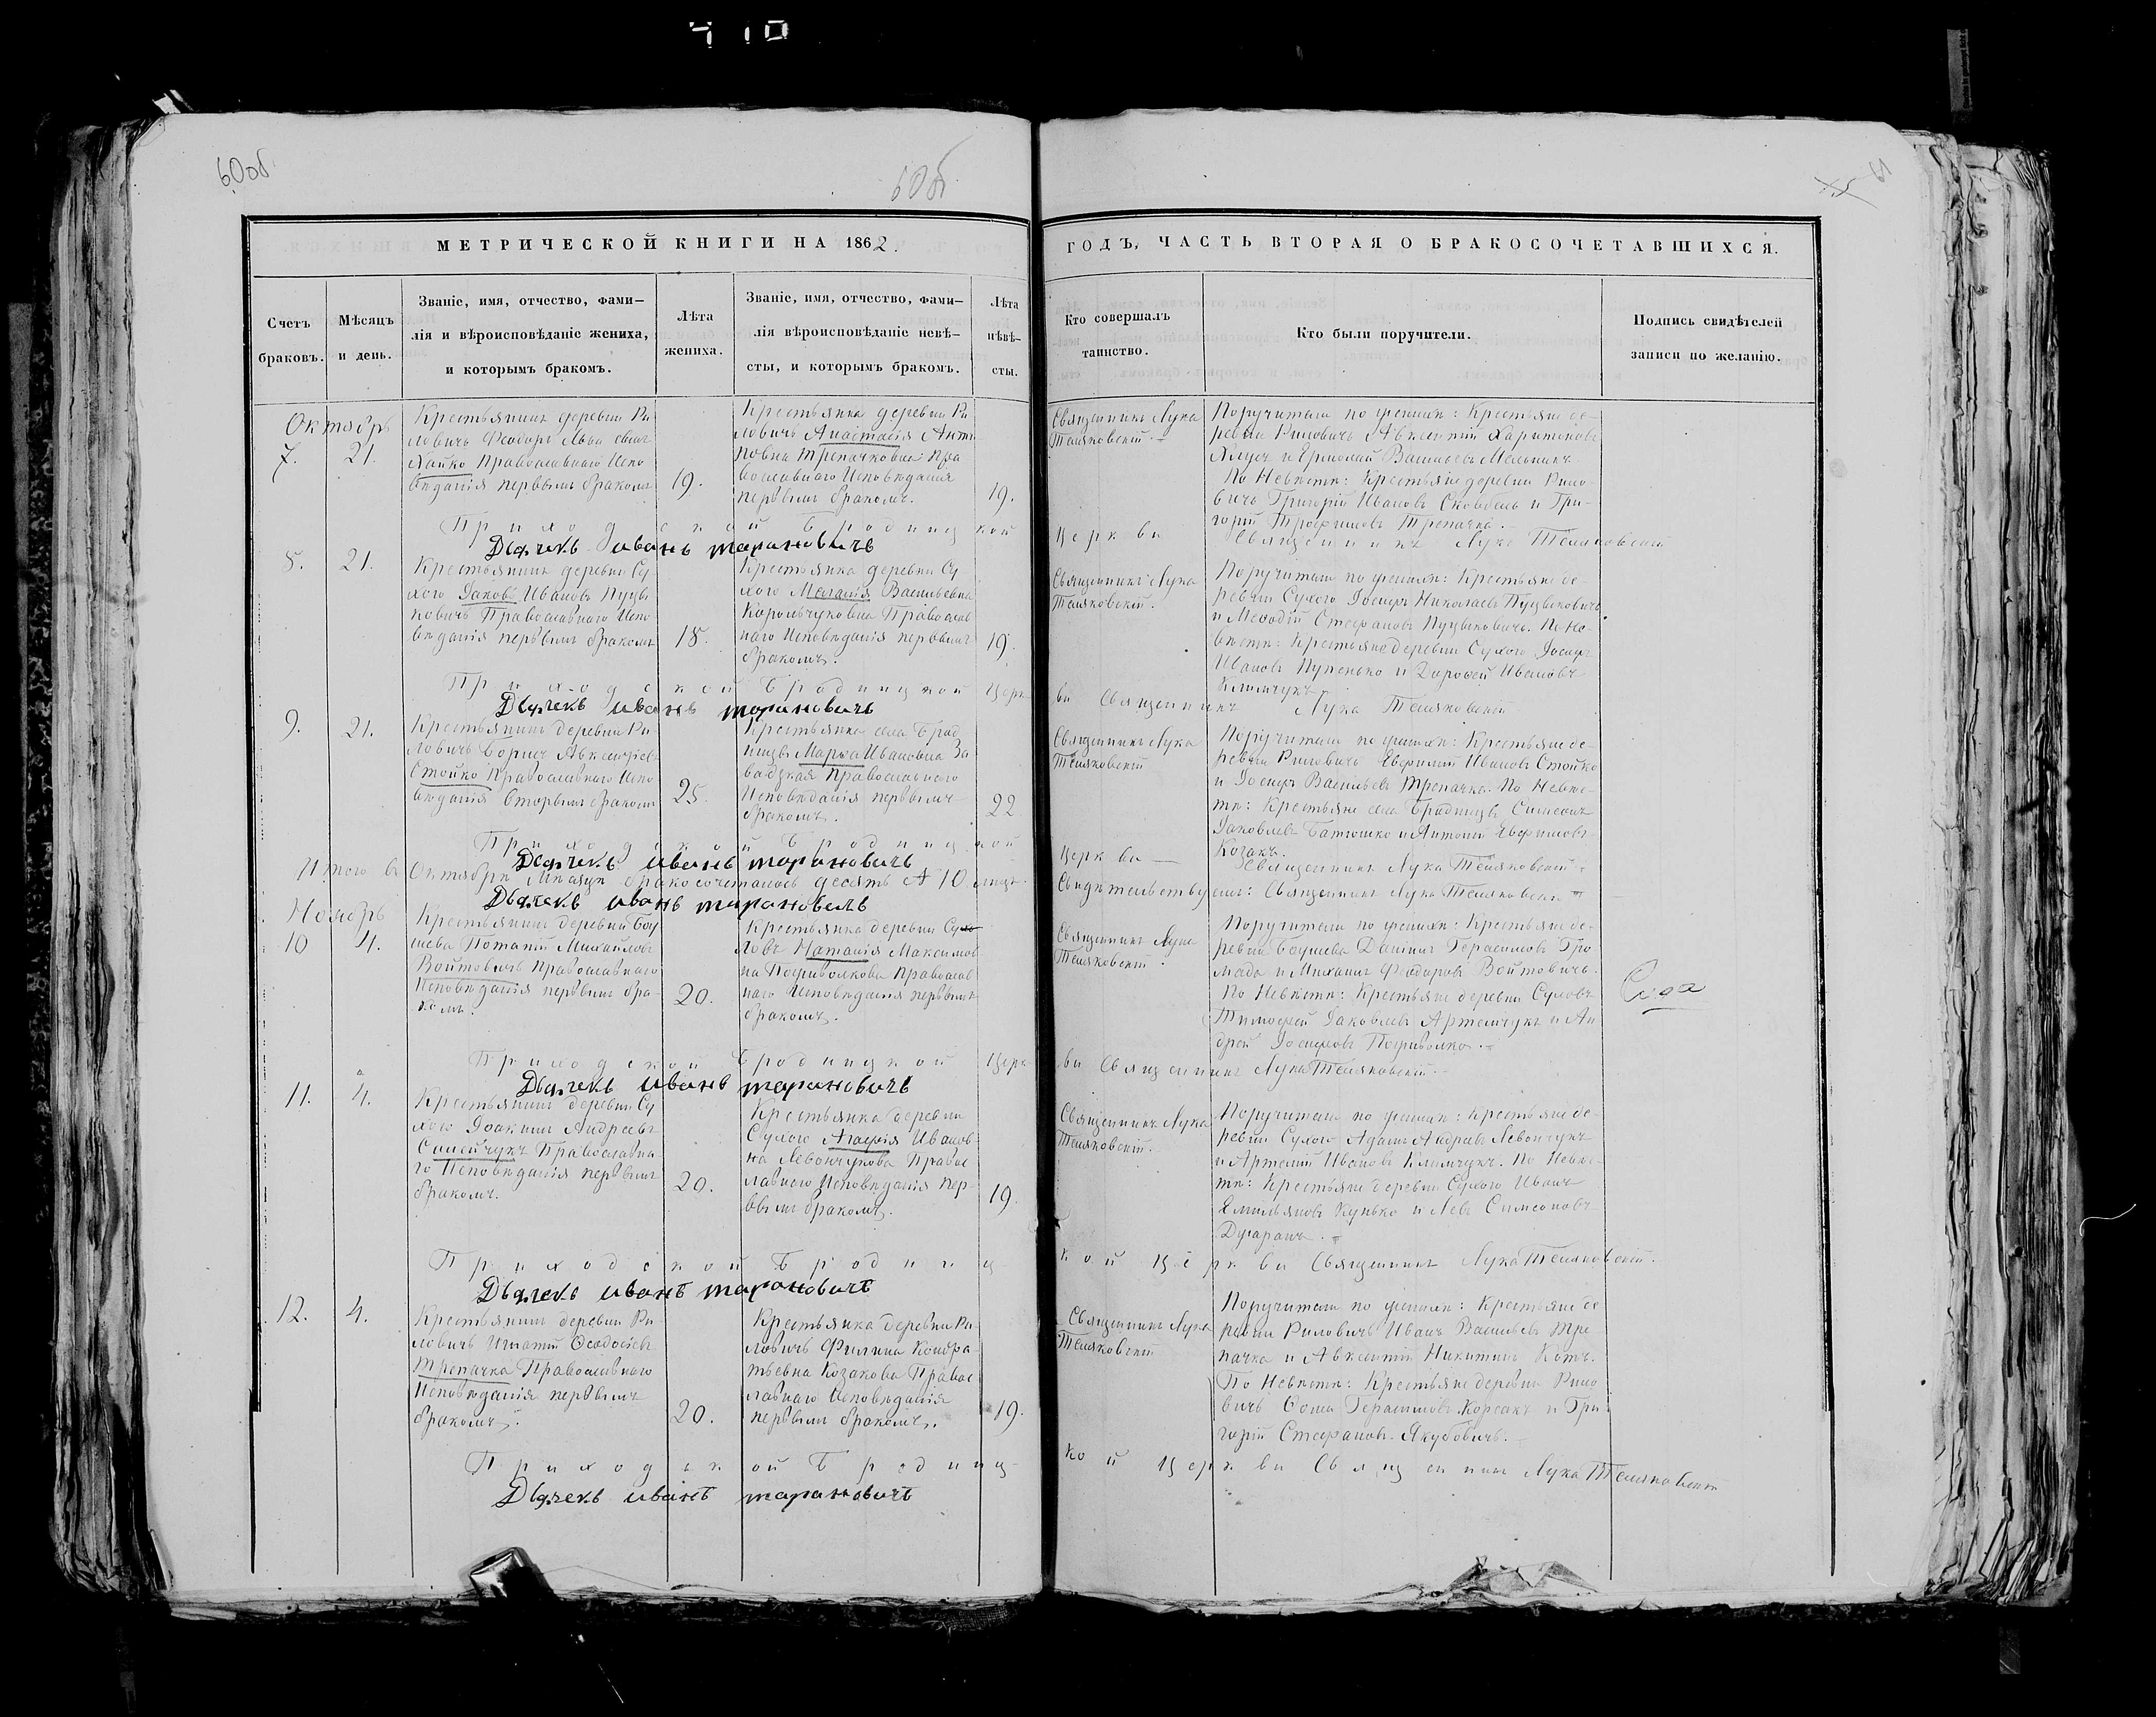 410
60об
60об
61
МЕТРИЧЕСКОЙ КНИГИ НА 1862.
ГОДЪ, ЧАСТЬ ВТОРАЯ О БРАКОСОЧЕТАВШИХСЯ.
Счетъ браковъ.
Мѣсяцъ и день.
Званіе, имя, отчество, фами–
лія и вѣроисповѣданіе жениха,
и которымъ бракомъ.
Лѣта
жениха.
Званіе, имя, отчество, фами–
лія вѣроисповѣданіе невѣ–
сты, и которымъ бракомъ.
Лѣта
невѣ–
сты.
Кто совершалъ
таинство.
Кто были поручители.
Подпись свидѣтелей
записи по желанію.
Октябрь
7. 21.
Крестьянинъ деревни Ри
ловичъ Ѳеодоръ Льва сынъ
Хайко Православнаго Испо
вѣданія первымъ бракомъ
19.
Крестьянка деревни Ри
ловичъ Анастасія Анти
повна Трепачковна Пра
вославнаго Исповѣданія
первымъ бракомъ.
19.
Священникъ Лука
Теляковскій.
Поручители по женихѣ: Крестьяне де–
ревни Риловичъ Авксентій Харитоновъ
и Ермолай Васильевъ Мельникъ
По Невѣстѣ: Крестьяне деревни Рило–
вичъ Григорій Ивановъ Сковбель и Гри–
горій Трофимовъ Трепачка.
Приходской Бродницкой
Церкви Священникъ Лука Теляковскій
Дьячекъ иванъ тарановичъ
8. 21.
Крестьянинъ деревни Су
хого Іаковъ Ивановъ Пуць
ковичъ Православнаго Испо
вѣданія первымъ бракомъ
18.
Крестьянка деревни Су
хого Меланія Васильевна
Корольчуковна Православ
наго Исповѣданія первымъ
бракомъ.
19.
Священникъ Лука
Теляковскій.
Поручители по женихѣ: Крестьяне де–
ревни Сухого Іосифъ Николаевъ Пуцьковичъ
и Меѳодій Стефановъ Пуцьковичъ. По Не–
вѣстѣ: Крестьяне деревни Сухого Іосифъ
Ивановъ Пупенько и Дороѳей Ивановъ
Климчукъ
Приходской Бродницкой Церк
ви Священникъ Лука Теляковскій
Дьячекъ иванъ тарановичъ
9. 21.
Крестьянинъ деревни Ри
ловичъ Борисъ Авксентіевъ
Стойко Православнаго Испо
вѣданія вторымъ бракомъ
25.
Крестьянка села Брод
ницъ Марѳа Ивановна За
вадзкая Православнаго
Исповѣданія первымъ
бракомъ.
22
Священникъ Лука
Теляковскій
Поручители по женихѣ: Крестьяне де–
ревни Риловичъ Евфимій Ивановъ Стойко
и Іосифъ Васильевъ Трепачка. По Невѣс–
тѣ: Крестьяне села Бродницъ Симеонъ
Іаковлевъ Батюшко и Антоній Евфимовъ
Козакъ.
Приходской Бродницкой
Церкви Священникъ Лука Теляковскій
Дьячекъ иванъ тарановичъ
Итого въ Октябрѣ Мѣсяцѣ бракосочеталось десять № 10 лицъ
Свидѣтельствуемъ: Священникъ Лука Теляковскій
Дьячекъ иванъ тарановичъ
Ноябрь
10 4.
Крестьянинъ деревни
Потапій Михайловъ
Войтовичъ Православнаго
Исповѣданія первымъ бра–
комъ.
20.
Крестьянка деревни Су
ловъ Наталія Максимов
на Православ
наго Исповѣданія первымъ
бракомъ.
Священникъ Лука
Теляковскій
Поручители по женихѣ: Крестьяне де–
ревни Даніилъ Герасимовъ Гро
мада и Михаилъ Ѳеодоровъ Войтовичъ.
По Невѣстѣ: Крестьяне деревни Суловъ
Тимоѳей Іаковлевъ Артемчукъ и Ан
дрей Іосифовъ
Приходской Бродницкой Церк
ви Священникъ Лука Теляковскій
Дьячекъ иванъ тарановичъ
11. 4.
Крестьянинъ деревни Су
хого Іоакимъ Андреевъ
Семейчукъ Православна
го Исповѣданія первымъ
бракомъ.
20.
Крестьянка деревни
Сухого Агафія Иванов
на Левончукова Правос
лавнаго Исповѣданія пер–
вымъ бракомъ.
19.
Священникъ Лука
Теляковскій.
Поручители по женихѣ: Крестьяне де–
ревни Сухого Адамъ Андреевъ Левончукъ
и Артемій Ивановъ Климчукъ. По Невѣс–
тѣ: Крестьяне деревни Сухого Иванъ
Емильяновъ Кунько и Левъ Симеоновъ
Приходской Бродниц
кой Церкви Священникъ Лука Теляковскій.
Дьячекъ иванъ тарановичъ
12. 4.
Крестьянинъ деревни Ри–
ловичъ Игнатій Ѳеодосіевъ
Трепачка Православнаго
Исповѣданія первымъ
бракомъ.
20.
Крестьянка деревни Ри–
ловичъ Филипа Кондра
тьевна Козакова Правос
лавнаго Исповѣданія
первымъ бракомъ.
19.
Священникъ Лука
Теляковскій
Поручители по женихѣ: Крестьяне де
ревни Риловичъ Иванъ Васильевъ Тре
пачка и Авксентій Никитинъ Котъ.
По Невѣстѣ: Крестьяне деревни Рило
вичъ Ѳома Герасимовъ Корсакъ и Гри–
горій Стефановъ Якубовичъ.
Приходской Бродниц–
кой Церкви Священникъ Лука Теляковскій
Дьячекъ иванъ тарановичъ